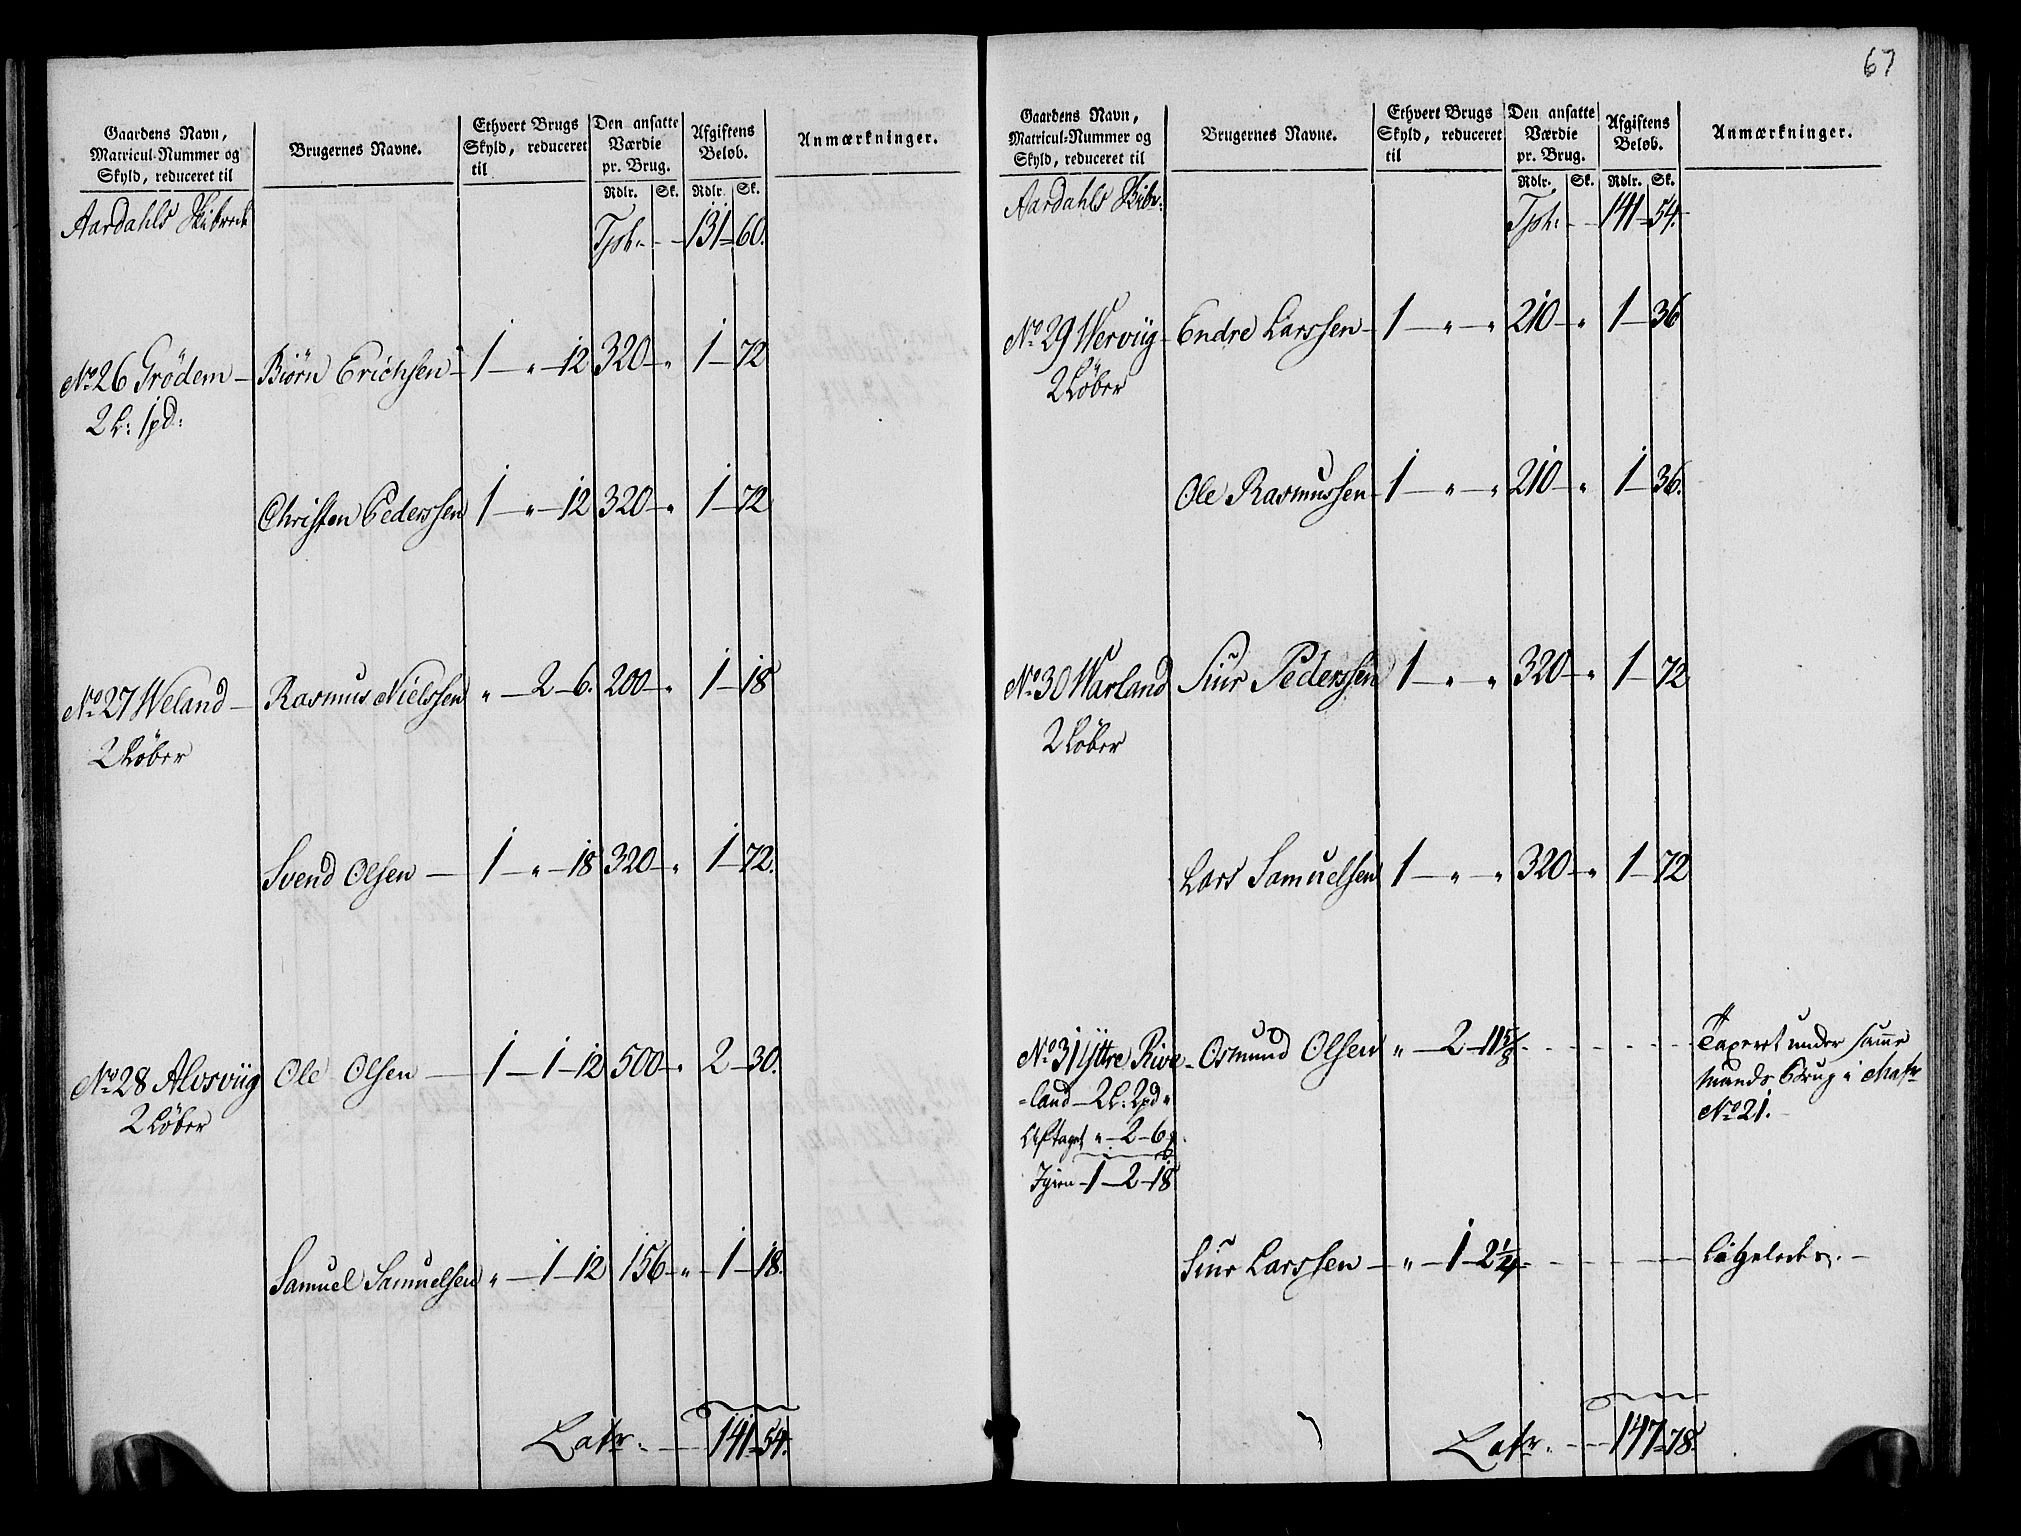 Gaardens Navn, Matricul-Nummer og Skyld, reduceret til
Brugernes Navne.
Ethvert Brugs Skyld, reduceret til
Den ansatte Værdie pr. Brug.
Rdlr. Sk.
Afgiftens Beløb.
Rdlr. Sk.
Anmærkninger.
Aardahls Skibrede Tpt: 131 60.
No 26 Grödem Biørn Erichsen 1 " 12 320 " 1 72
2 L: 1 pd:
Christen Pederssen 1 " 12 320 " 1 72
No 27 Weland Rasmus Nielssen " 2 6. 200 " 1 18
2 Løber
Svend Olsen 1 " 18 320 " 1 72.
No 28 Alvsviig Ole Olsen 1 1 12 500 " 2 30.
2 Løber
Samuel Samuelsen " 1 12 156 " 1 18.
Latr. 141 54.
67
Gaardens Navn, Matricul-Nummer og Skyld, reduceret til
Brugernes Navne.
Ethvert Brugs Skyld, reduceret til
Den ansatte Værdie pr. Brug.
Rdlr. Sk.
Afgiftens Beløb.
Rdlr. Sk.
Anmærkninger.
Aardahls Skibr: Tpt: 141 54.
No 29 Werviig Endre Larssen 1 " " 210 " 1 36
2 Løber
Ole Rasmussen 1 " " 210 " 1 36.
No 30 Warland Siur Pederssen 1 " " 320 " 1 72
2 Løber
Lars Samuelsen 1 " " 320 " 1 72
No 31 Yttre Rive- Osmund Olsen " 2 11 5/8 Taxeret under samme
=land 2 L: 2 pd " Mands Brug i Matr
Aftaget " 2 6. No 21.
Igien 1 2 18
Siur Larssen " 1 2 1/4 Ligeledes.
Latr. 147 78.